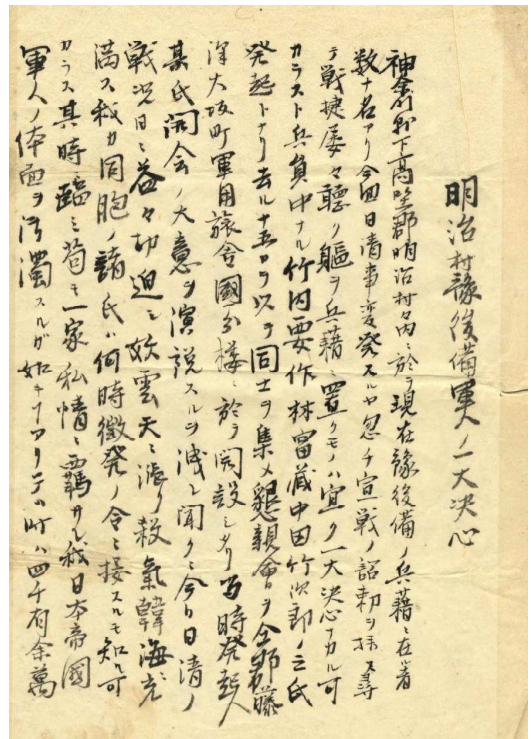 明治村豫後備軍人ノ一大决心
神奈川縣下高座郡明治村々内ニ於テ現在豫後備ノ兵藉ニ在ル者
数十名アリ今回日清事変発スルヤ忽チ宣戦ノ詔勅ヲ拝ス尋
テ戦捷屡々聴ク軀ヲ兵藉ニ置クモノハ宜ク一大决心ナカル可
カラスト兵員中ナル竹内要作林富蔵中田竹次郎ノ三氏
発起トナリ去ル十五日ヲ以テ同士ヲ集メ懇親會ヲ仝郡藤
澤大坂町軍用旅舎國分楼ニ於テ開設シタリ当時発起人
某氏開会ノ大意ヲ演説スルヲ聞クニ今ヤ日清ノ
戦况日ニ益々切迫シ妖雲天ニ漲リ殺氣韓海ニ充
満ス我カ同胞ノ諸氏ハ何時徴発ノ令ニ接スルモ知ル可
カラス其時臨ミ苟モ一家私情ニ羈サレ我日本帝國
軍人ノ体面ヲ汚濁スルガ如キアリテハ四千有余萬